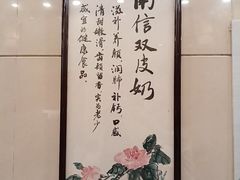 南信双皮奶
滋补养颜,润肺补钙,口感
清甜嫩滑,齿颊留香,实为老少
咸宜的健康食品。